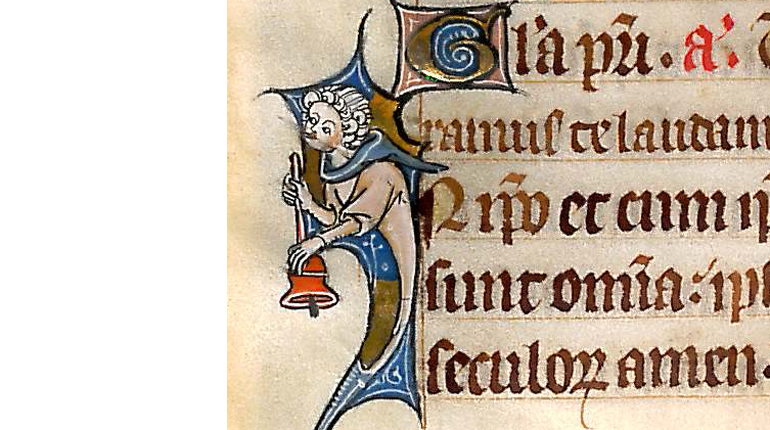 Gl'a pr̃i. a'.
ramuſ te laudam
N ip̃o et cum ip̃
sunt om̃ia: ip
seculoꝝ amen.